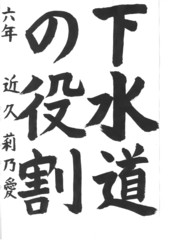 下水道
の役割
六年 近久莉乃愛